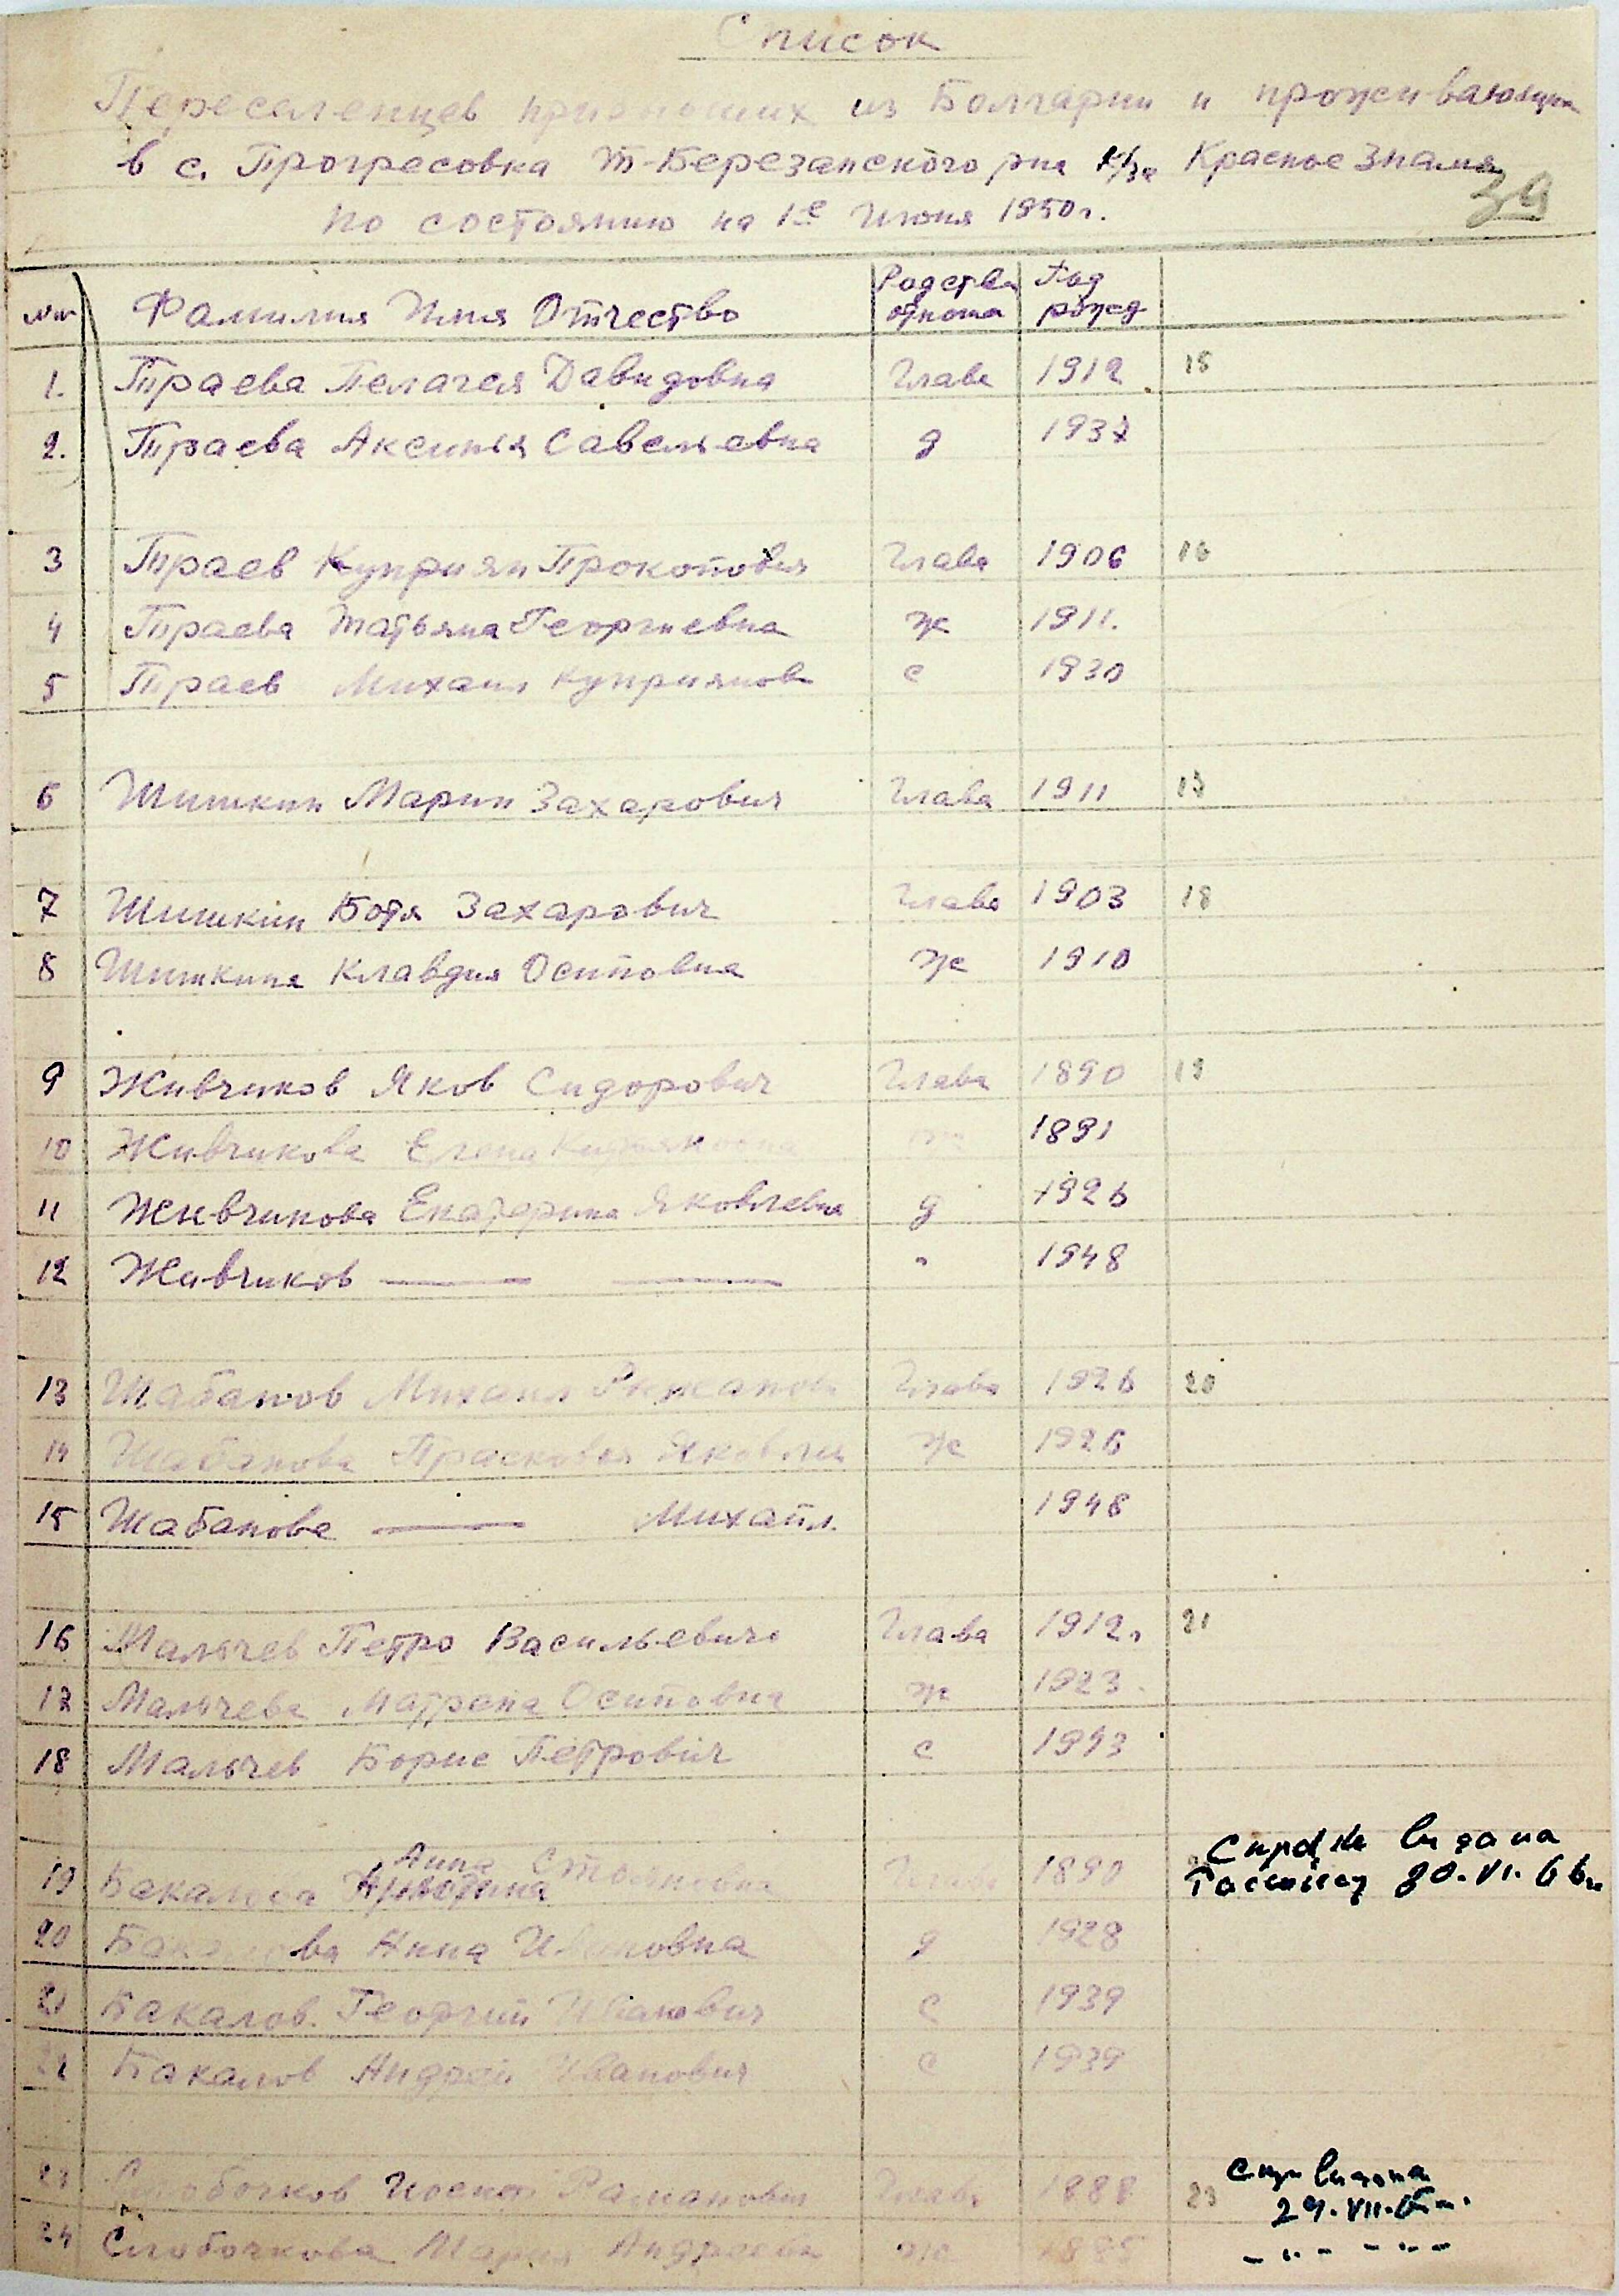 Список
Переселенцев приехавших из Болгарии и проживающих
в с. Прогресовка Т-Березанского р-на к/за Красное Знамя
по состоянию на 1е Июня 1950г.
39
№№ Фамилия Имя Отчество Родствен отнош Год рожд
1. Траева Пелагея Давидовна Глава 1912 15
2. Траева Аксинья Савельевна д 1937
3 Траев Куприян Прокопович Глава 1906 16
4 Траева Татьяна Георгиевна ж 1911.
5 Траев Михаил Куприянов с 1930
6 Шишкин Марин Захарович Глава 1911 17
7 Шишкин Ботя Захарович Глава 1903 18
8 Шишкина Клавдия Осиповна ж 1910
9 Живчиков Яков Сидорович Глава 1890 19
10 Живчикова Елена ж 1891
11 Живчикова Екатерина Яковлевна д 1926
12 Живчиков — — " 1948
13 Шабанов Михаил Глава 1926 20
14 Шабанова Прасковья Яковлев ж 1926
15 Шабанова — Михайл. 1948
16 Малычев Петро Васильевич Глава 1912. 21
17 Малычева Матрена Осиповна ж 1923.
18 Малычев Борис Петрович с 1943
19 Бакалова Анна Стояновна Глава 1890 выдана 30.VI.
20 Бакалова Нина Ивановна д 1928
21 Бакалов Георгий Иванович с 1939
22 Бакалов Андрей Иванович с 1939
23 Слободчков Иосиф Раманович Глава 1888 23 выдана
29.VII.
24 Слободчкова Мария Андреевн ж 1885 -"- -"-